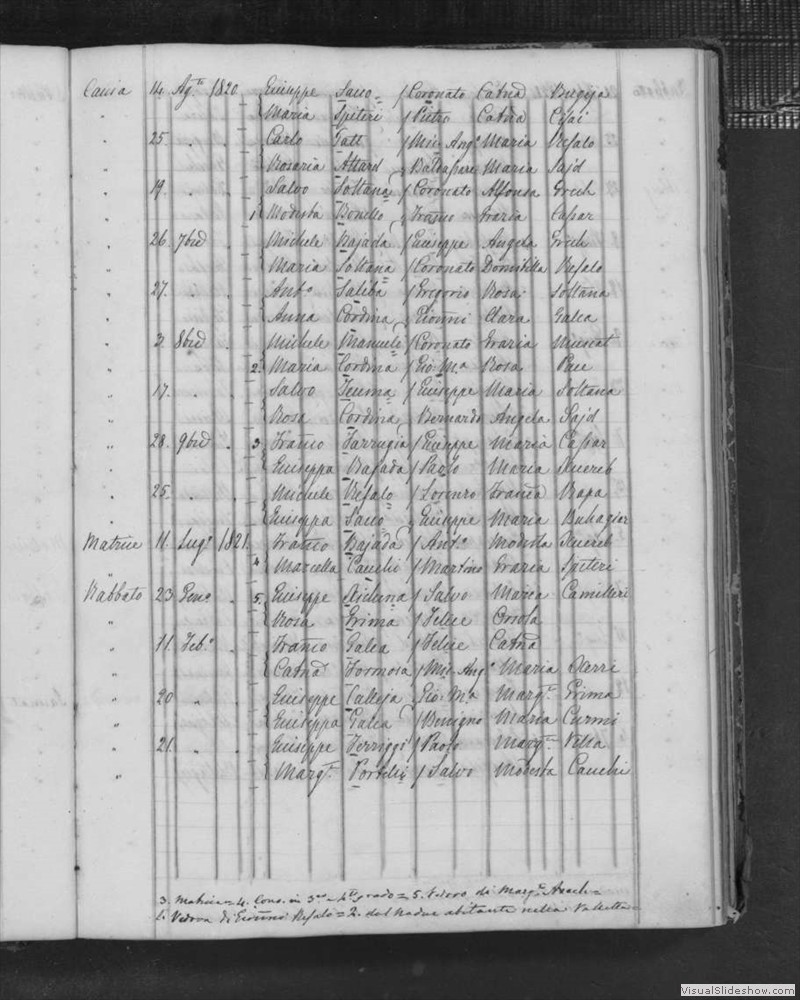 Caccia 14. Agto 1820 Giuseppe Sacco / Coronato Catna Bugeja
" Maria Spiteri / Pietro Catna Cefai
" 25. " " Carlo Tatt / Mic: Ango Maria Refalo
" Rosaria Attard / Baldassare Maria Sajd
" 19. " " Salvo Soltana / Coronato Alfonsa Grech
" 1. Modesta Bonello / Franco Grazia Cassar
" 26. 7bre " Michele Bajada / Giuseppe Angela Grech
" Maria Soltana / Coronato Domitilla Refalo
" 27. " " Anto Saliba / Gregorio Rosa Soltana
" Anna Cordina / Gioanni Clara Galea
" 3. 8bre " Michele / Coronato Grazia Muscat
" 2. Maria Cordina / Gio: Ma Rosa Pace
" 17. " " Salvo Teuma / Giuseppe Maria Soltana
" Rosa Cordina / Bernardo Angela Sajd
" 28. 9bre " 3. Franco Farrugia / Giuseppe Maria Cassar
" Giuseppa Bajada / Paolo Maria Xuereb
" 25. " " Michele Refalo / Lorenzo Franca Rapa
" Giuseppa Sacco / Giuseppe Maria Buhagiar
Matrice 11. Lugo 1821. Franco Bajada / Anto Modesta Xuereb
" 4 Marcella Cauchi / Martino Grazia Spiteri
Rabbato 23 Geno " 5. Giuseppe / Salvo Maria Camilleri
" Rosa Grima / Felice Orsola
" 11. Febo " Franco Galea / Felice Catna
" Catna Formosa / Mic: Ango Maria Xerri
" 20 " " Giuseppe Calleja / Gio: Ma Margta Grima
" Giuseppa Galea / Benigno Maria Curmi
" 21. " " Giuseppe Ferriggi / Paolo Margta Vella
" Margta Portelli / Salvo Modesta Cauchi
3. = 4. Cons. in 3o e 4to grado = 5. Vedovo di Margta =
1. Vedova di Gioanni Refalo = 2. del Nadur abitante nella Valletta =
VisualSlideshow.com